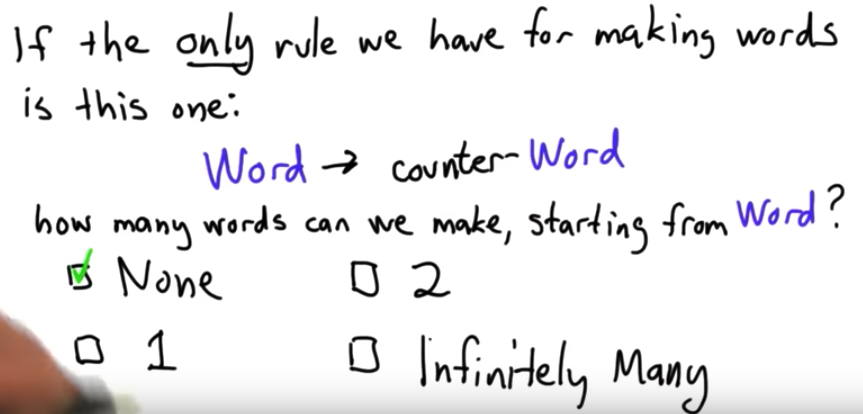 If the only rule we have for making words
is this one:
Word → counter-Word
how many words can we make, starting from Word?
None 2
1 Infinitely Many